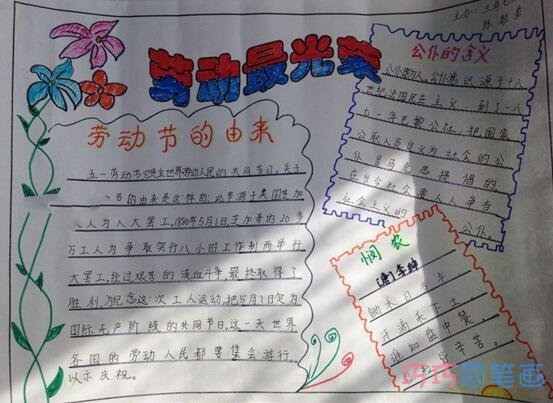 主办：三年七
陈毅
劳动最光荣
劳动节的由来
五一劳动节它是全世界劳动人民的共同节日。关于
节的由来是这样的：此节源于美国芝加
人为人大罢工，1886年5月1日芝加哥的20多
万工人为争取实行八小时工作制而举行
大罢工，经过艰苦的流血斗争，最终取得了
胜利，为纪念这次工人运动，把5月1日突为
国际无产阶级的共同节日，这一天世界
各国的劳动人民都要集会游行，
以示庆祝。
公仆的含义
公仆即为人，公仆意识源于十八
世纪法国民主主义 到了一八
七一年巴黎公社，把国家
公职人员定义为社会的公
仆是马克思提倡的
在当今社会要人人争当
社会主义的 公仆。
悯农
(唐)李绅
锄禾日当午
汗滴禾下土。
谁知盘中餐，
粒粒皆辛苦。
巧巧简笔画